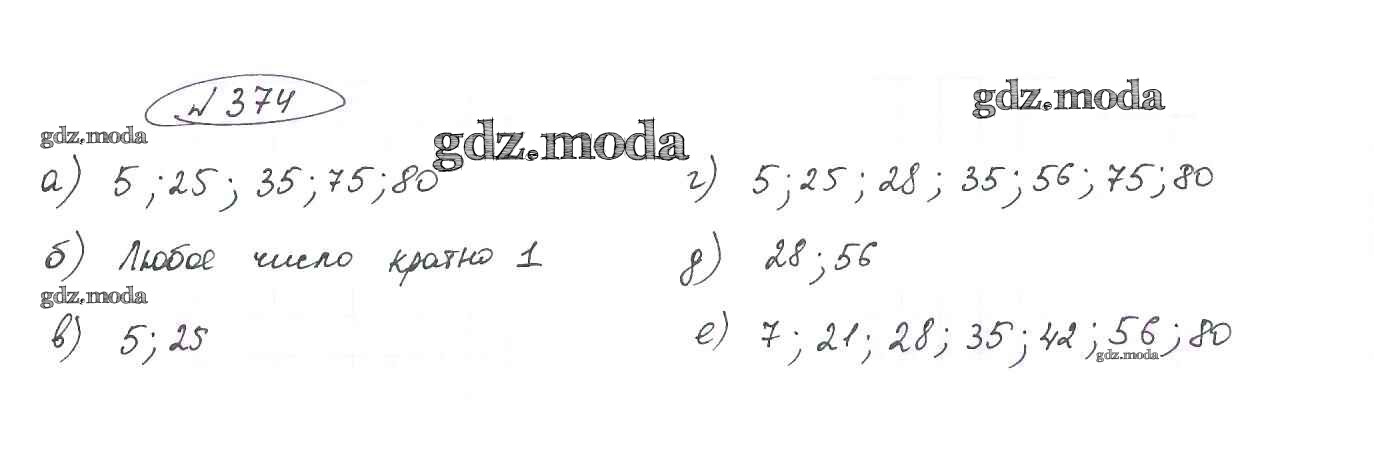 № 374
gdz.moda
gdz.moda
gdz.moda
а) 5 ; 25 ; 35 ; 75 ; 80
г) 5 ; 25 ; 28 ; 35 ; 56 ; 75 ; 80
б) Любое число кратно 1
д) 28 ; 56
gdz.moda
в) 5 ; 25
е) 7 ; 21 ; 28 ; 35 ; 42 ; 56 ; 80
gdz.moda